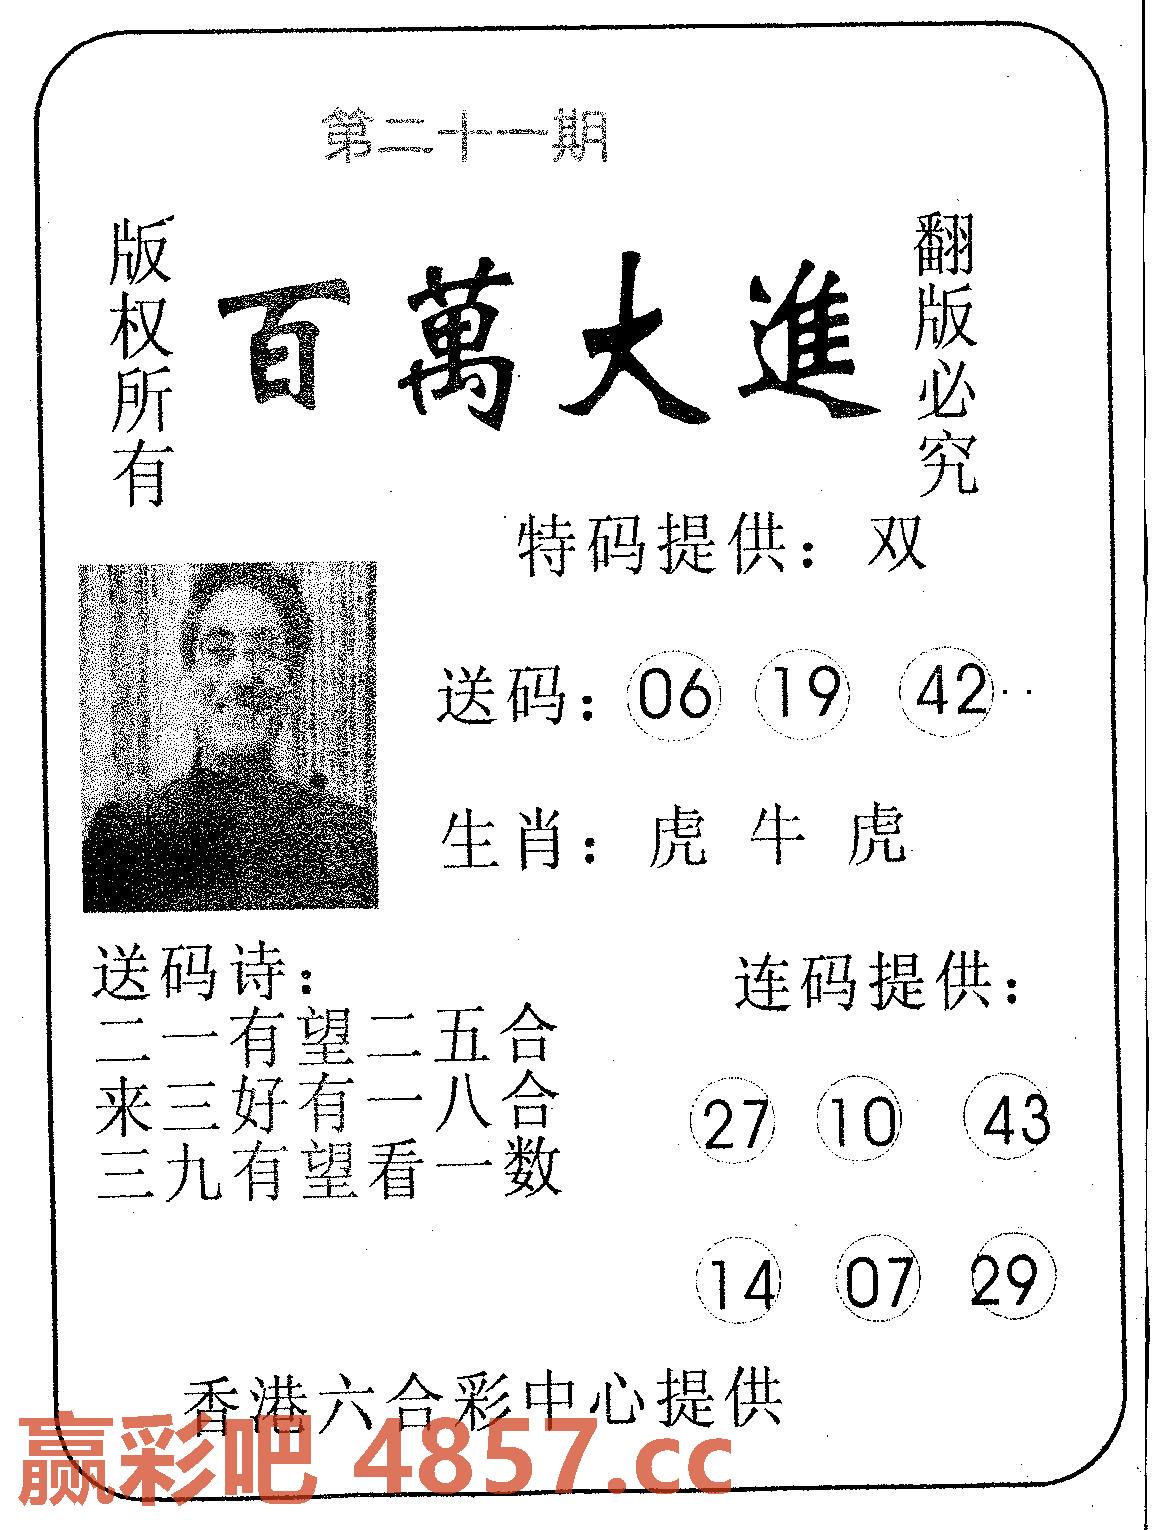 第二十一期
版权所有
百萬大進
翻版必究
特码提供：双
送码：06 19 42
生肖：虎 牛 虎
送码诗：
二一有望二五合
来三好有一八合
三九有望看一数
连码提供：
27 10 43
14 07 29
香港六合彩中心提供
赢彩吧 4857.cc